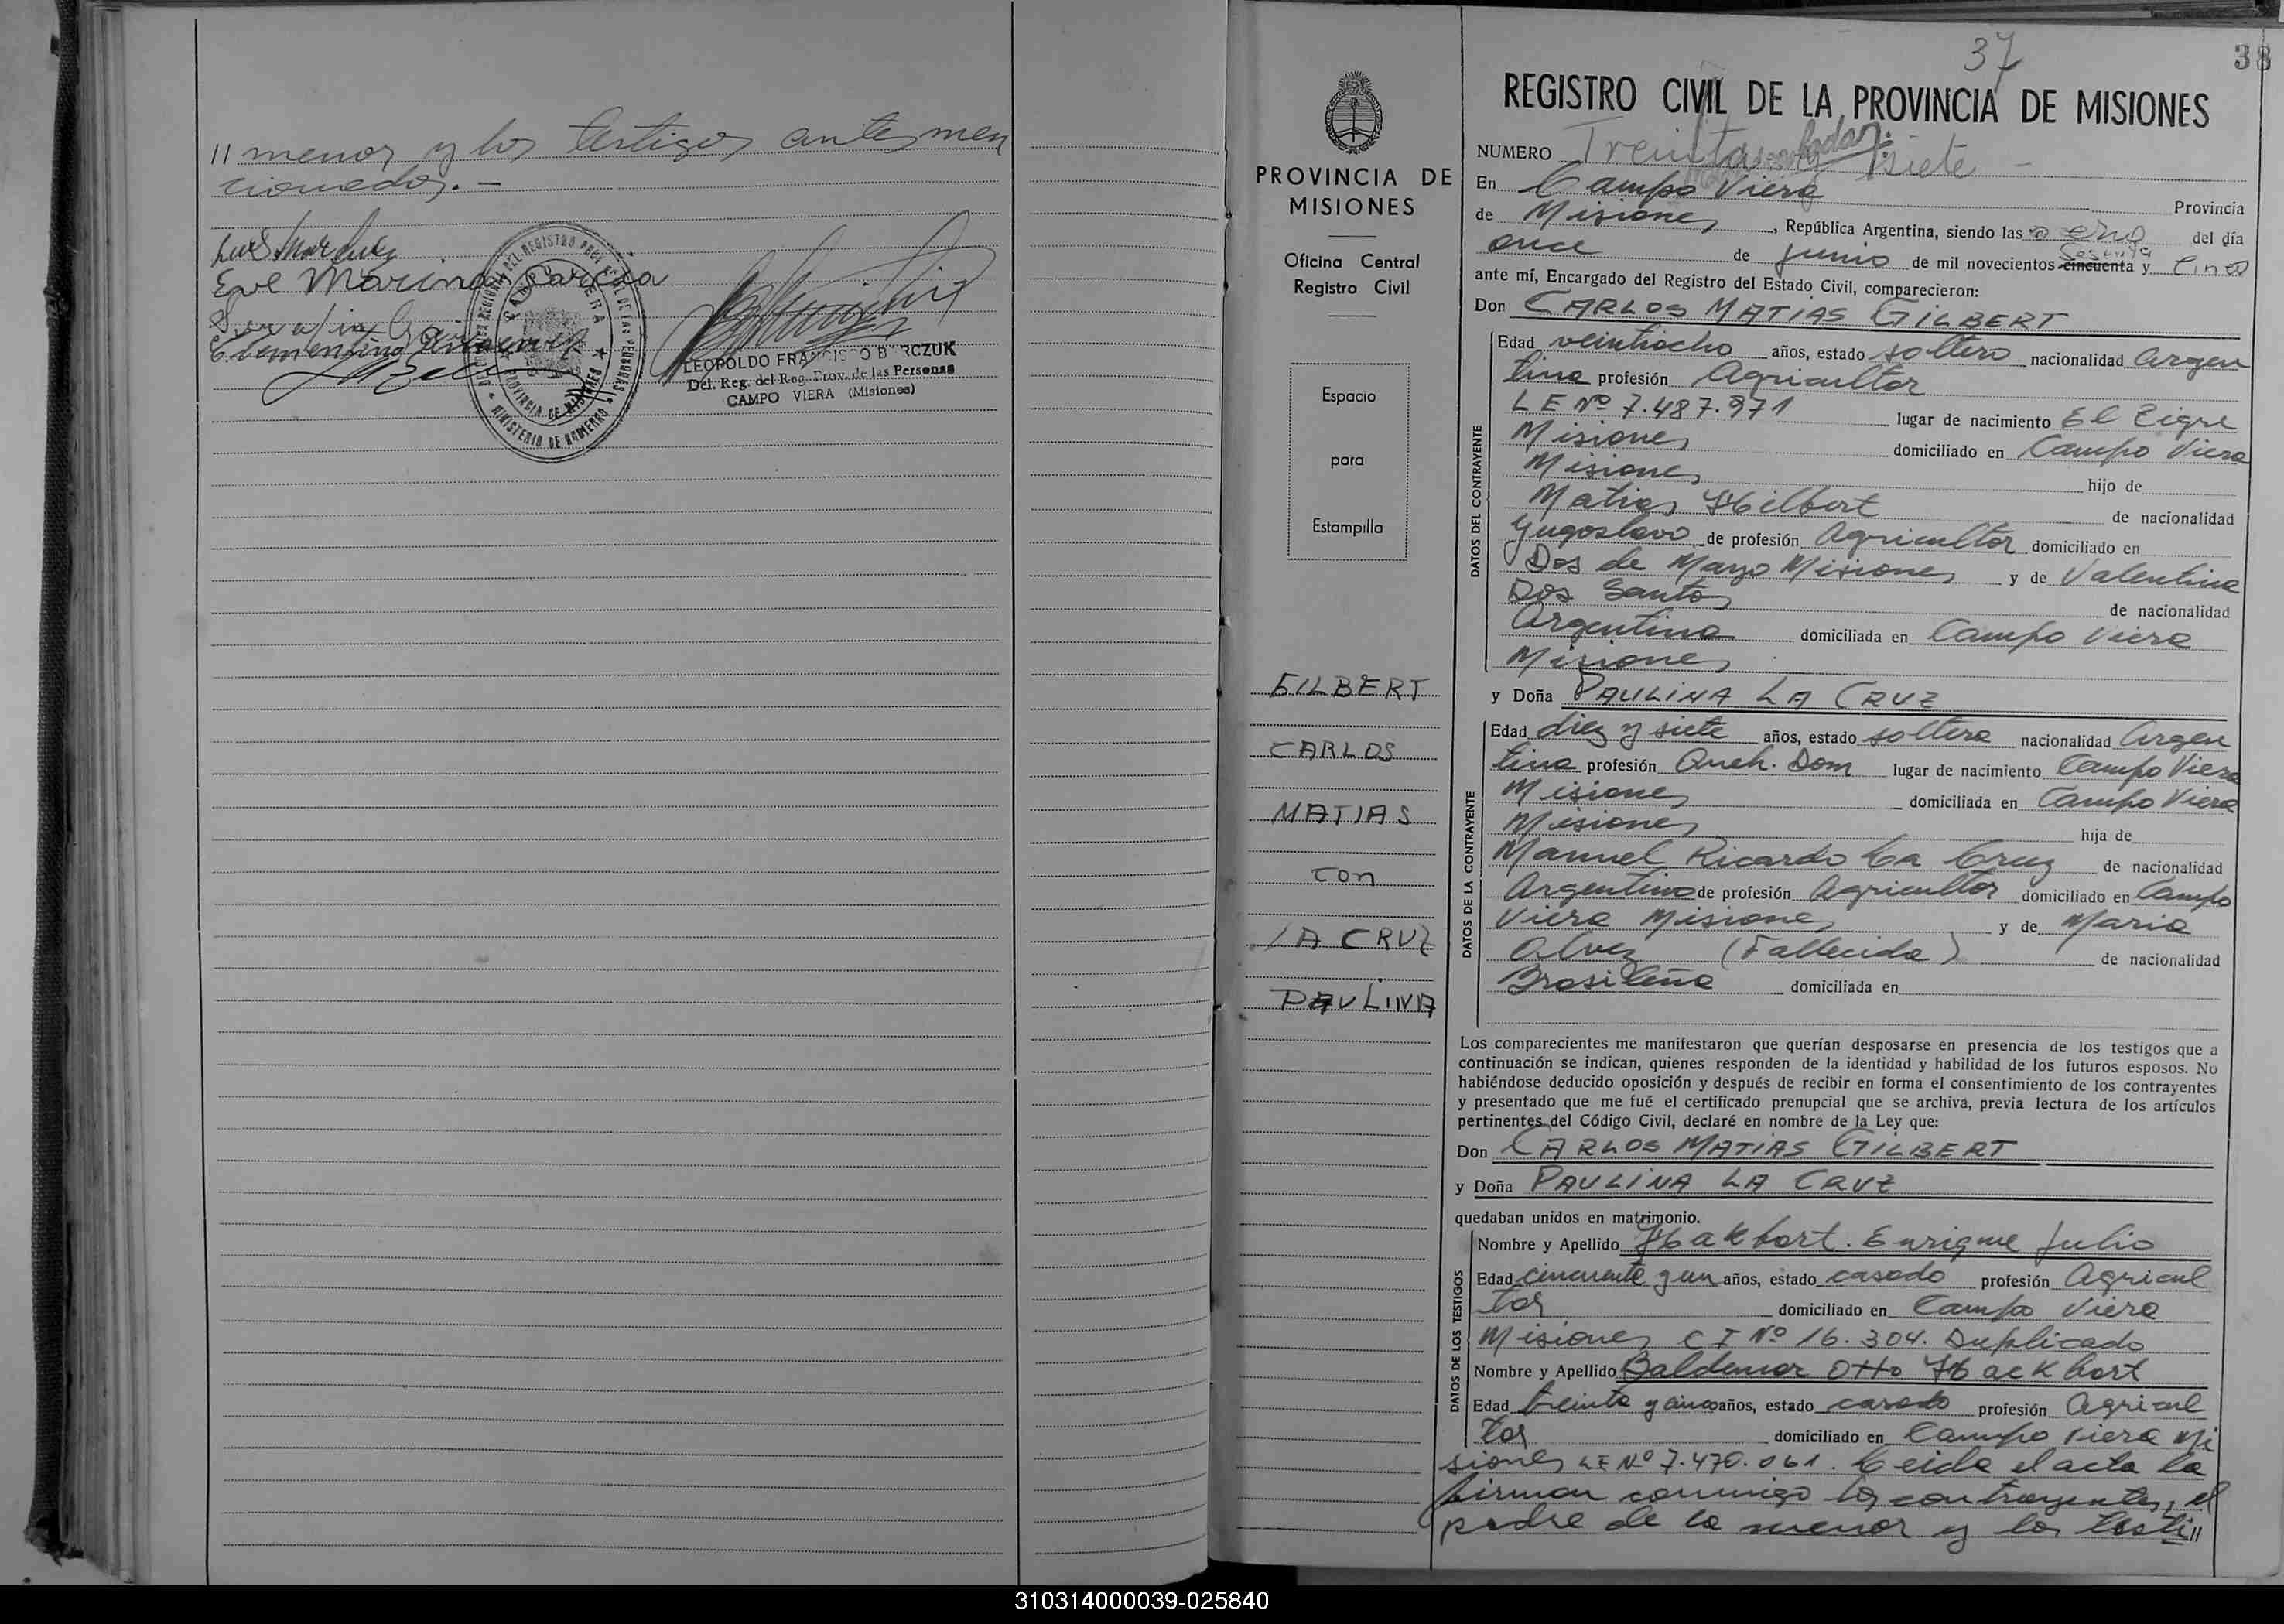 // menor y los testigos antes men
cionados. —
Eve Marina
Clementino
LEOPOLDO FRANCISCO B RCZUK
Del. Reg. del Reg. Prov. de las Personas
CAMPO VIERA (Misiones)
MINISTERIO DE GOBIERNO
PROVINCIA DE MISIONES
37
38
REGISTRO CIVIL DE LA PROVINCIA DE MISIONES
PROVINCIA DE
MISIONES
Oficina Central
Registro Civil
Espacio
para
Estampilla
GILBERT
CARLOS
MATIAS
con
LA CRUZ
PAULINA
NUMERO Treinta y siete —
En Campo Viera Provincia
de Misiones, República Argentina, siendo las del día
once de junio de mil novecientos cincuenta y sesenta cinco
ante mí, Encargado del Registro del Estado Civil, comparecieron:
Don CARLOS MATIAS GILBERT
DATOS DEL CONTRAYENTE
Edad veintiocho años, estado soltero nacionalidad Argen
tina profesión Agricultor
LE Nº 7.487.971 lugar de nacimiento El Tigre
Misiones domiciliado en Campo Viera
Misiones hijo de
Matias Hilbert de nacionalidad
Yugoslavo de profesión Agricultor domiciliado en
Dos de Mayo Misiones y de Valentina
Dos Santos de nacionalidad
Argentina domiciliada en Campo Viera
Misiones
y Doña PAULINA LA CRUZ
DATOS DE LA CONTRAYENTE
Edad diez y siete años, estado soltera nacionalidad Argen
tina profesión Queh. Dom lugar de nacimiento Campo Viera
Misiones domiciliada en Campo Viera
Misiones hija de
Manuel Ricardo La Cruz de nacionalidad
Argentino de profesión Agricultor domiciliado en Campo
Viera Misiones y de Maria
Alvez (Fallecida) de nacionalidad
Brasileña domiciliada en
Los comparecientes me manifestaron que querían desposarse en presencia de los testigos que a
continuación se indican, quienes responden de la identidad y habilidad de los futuros esposos. No
habiéndose deducido oposición y después de recibir en forma el consentimiento de los contrayentes
y presentado que me fué el certificado prenupcial que se archiva, previa lectura de los artículos
pertinentes del Código Civil, declaré en nombre de la Ley que:
Don CARLOS MATIAS GILBERT
y Doña PAULINA LA CRUZ
quedaban unidos en matrimonio.
DATOS DE LOS TESTIGOS
Nombre y Apellido Hakbort. Enrique Julio
Edad cincuenta y un años, estado casado profesión Agricul
tor domiciliado en Campo Viera
Misiones C I Nº 16.304. Duplicado
Nombre y Apellido Baldemar Otto Hackbort
Edad treinta y cinco años, estado casado profesión Agricul
tor domiciliado en Campo Viera Mi
siones LE Nº 7.470.061. Leida el acta la
firman conmigo los contrayentes, el
padre de la menor y los testi//
310314000039-025840